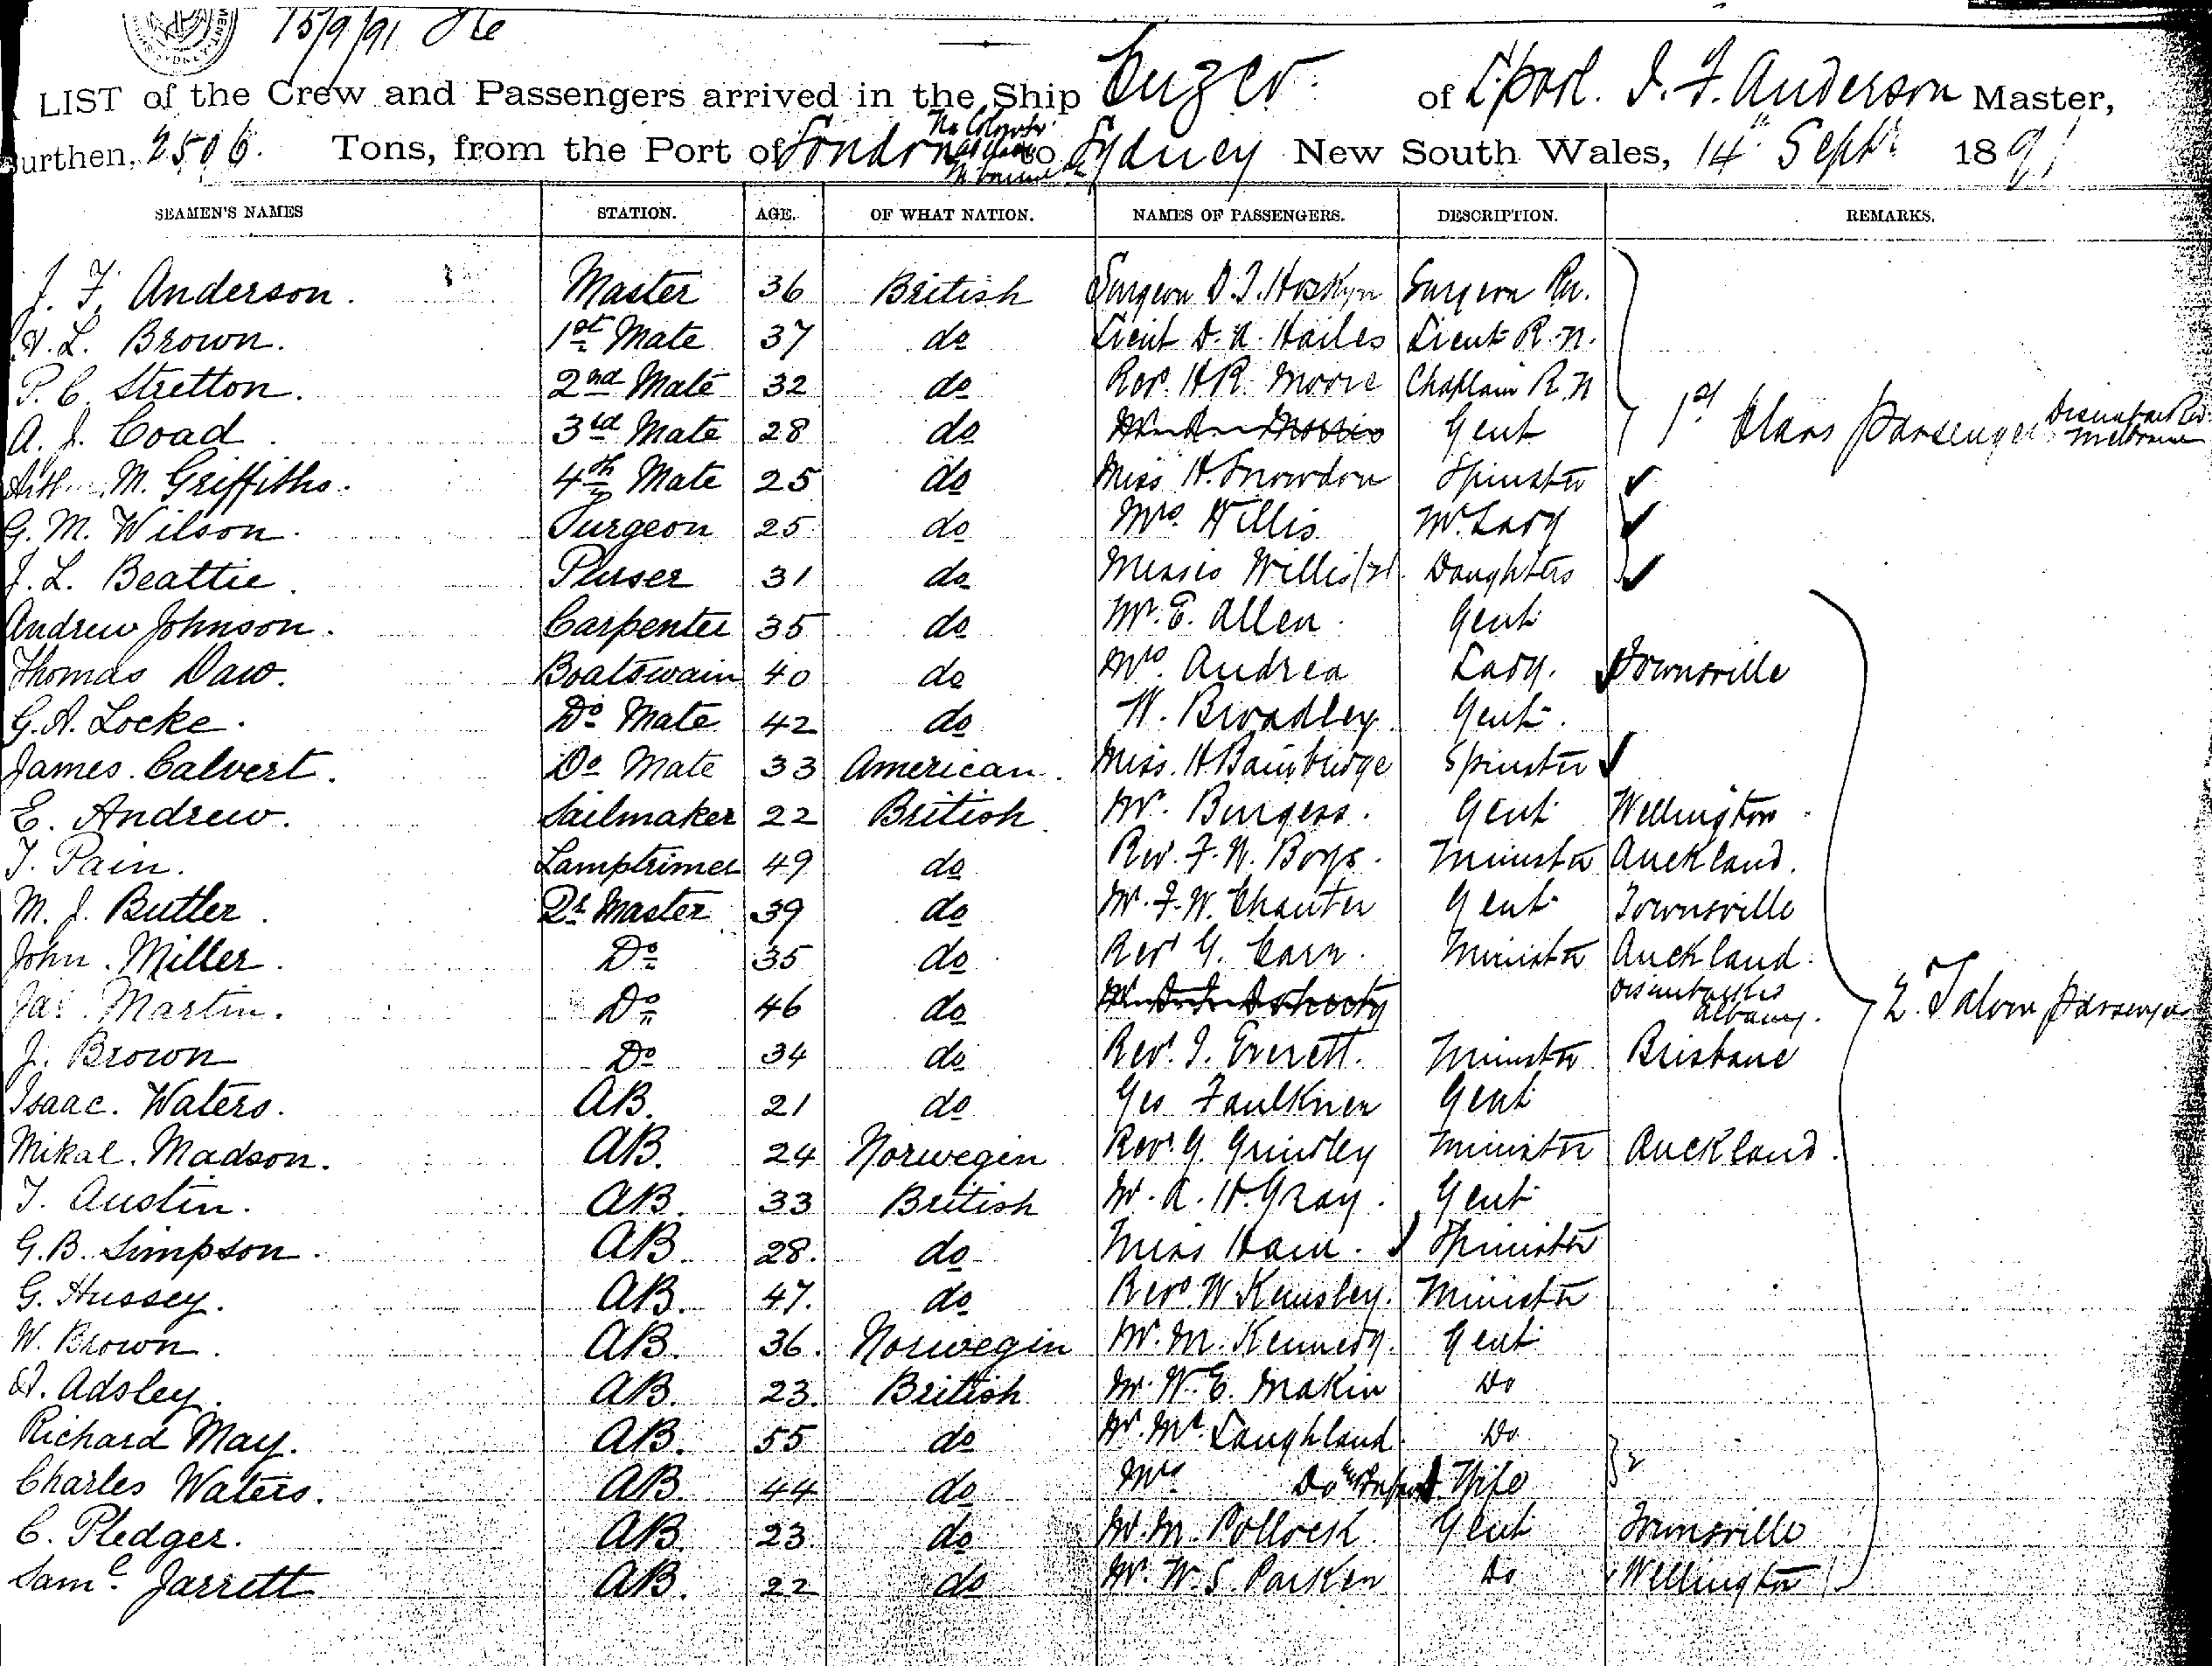 15/9/91
LIST of the Crew and Passengers arrived in the Ship Cuzco. of Lpool. J. F. Anderson Master,
Burthen, 2506. Tons, from the Port of London to Sydney New South Wales, 14th Septr 1891
SEAMEN'S NAMES STATION. AGE. OF WHAT NATION. NAMES OF PASSENGERS. DESCRIPTION. REMARKS.
J. F. Anderson. Master 36 British Surgeon D. T. Hoskyn Surgeon Rn.
L. Brown. 1st Mate 37 do Lieut D. A. Hailes Lieut R.N.
P. C. Stretton. 2nd Mate 32 do Rev. H R. Moore Chaplain R.N
A. J. Coad. 3rd Mate 28 do Morris Gent 1st Class Passenger
M. Griffiths. 4th Mate 25 do Miss H. Snowdon Spinster
G. M. Wilson. Surgeon 25 do Mrs Willis Lady
J. L. Beattie. Purser 31 do Misses Willis Daughters
Andrew Johnson. Carpenter 35 do Mr. E. Allen. Gent
Thomas Daw. Boatswain 40 do Mrs Andrea Lady. Townsville
G. A. Locke. Do Mate 42 do W. Broadley Gent.
James Calvert. Do Mate 33 American. Miss. H Bainbridge Spinster
E. Andrew. Sailmaker 22 British Mr. Burgess. Gent Wellington
T. Pain. Lamptrimer 49 do Rev. F. W. Boys. Minister Auckland.
M. J. Butler. Qr Master 39 do Mr. F. W. Chanter Gent Townsville
John Miller. Do 35 do Revd G. Carr. Minister Auckland.
Jas Martin. Do 46 do Doherty Disembarked Albany. 2. Saloon Passengers
J. Brown Do 34 do Revd J. Everett. Minister Brisbane
Isaac. Waters. AB. 21 do Geo Faulkner Gent
Mikal. Madson. AB. 24 Norwegin Revd G. Grindley Minister Auckland.
T. Austin. AB. 33 British Mr. A. H. Gray. Gent
G. B. Simpson. AB. 28. do Miss Ham. Spinster
G. Hussey. AB. 47. do Revd W Kemsley. Minister
W. Brown. AB. 36. Norwegin Mr. M. Kennedy. Gent
Adsley. AB. 23. British Mr. W. E. Makin Do
Richard May. AB. 55 do Mr. Mc Laughland. Do
Charles Waters. AB. 44 do Mrs Do Infant Wife 2
C. Pledger. AB. 23. do Mr. M. Pollock Gent Townsville
Saml. Jarrett AB. 22 do Mr. W. S. Parker Do Wellington